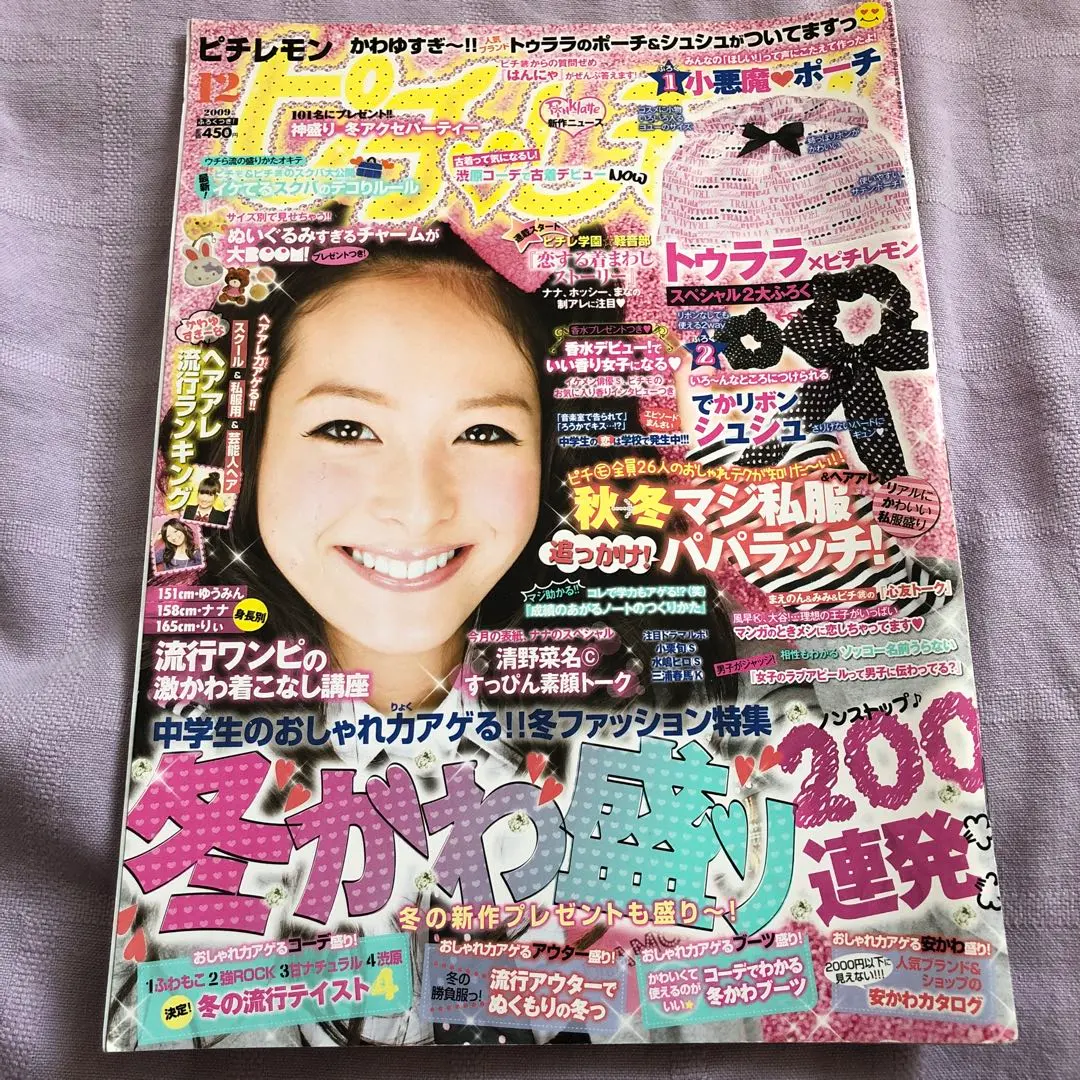 ピチレモン
かわゆすぎ～!!
人気ブランド
トゥララのポーチ&シュシュがついてますっ
12
2009年
ふろくつき!
450円
ピチ読からの質問ぜめ
「はんにゃ」がぜんぶ答えます!
みんなの「ほしい!」って声にこたえて作ったよ!
ふろく
1 小悪魔♥ポーチ
PINKlatte
新作ニュース
101名にプレゼント!!
神盛り 冬アクセパーティー
ウチら流の盛りかたオキテ
最新!
ピチモ&ピチ読のスクバ大公開
イケてるスクバのデコりルール
古着って気になるし!
渋原コーデで古着デビューNOW
サイズ別で見せちゃう!!
ぬいぐるみすぎるチャームが
大BOOM!
プレゼントつき!
連載スタート
ピチレ学園☆軽音部
『恋する着まわし
ストーリー』
ナナ、ホッシー、まなの
制アレに注目♥
トゥララ×ピチレモン
スペシャル2大ふろく
リボンなしでも
使える2way
ふろく
2
いろ～んなところにつけられる
でかリボン
シュシュ
さりげないハートに
キュン
かわゆすぎ～る
ヘアアレ力アゲる!!
スクール&私服用&芸能人ヘア
ヘアアレ
流行ランキング
香水プレゼントつき♥
香水デビュー!で
いい香り女子になる♥
イケメン俳優S、ピチモの
お気に入り香りインタビューつき
「音楽室で告られて」
「ろうかでキス…!?」
エピソード
まんさい
中学生の恋は学校で発生中!!!
ピチモ全員26人のおしゃれテクが知りた～い!!
秋・冬マジ私服
&ヘアアレ
リアルに
かわいい
私服盛り
追っかけ!パパラッチ!
151cm・ゆうみん
158cm・ナナ
165cm・りぃ
身長別
流行ワンピの
激かわ着こなし講座
マジ助かる!!
コレで学力もアゲる!?(笑)
『成績のあがるノートのつくりかた』
まえのん&みみ&ピチ読の『心友トーク』
風早K、大谷!…理想の王子がいっぱい
マンガのときメンに恋しちゃってます♥
今月の表紙、ナナのスペシャル
清野菜名©
すっぴん素顔トーク
注目ドラマルポ
小栗旬S
水嶋ヒロS
三浦春馬K
相性もわかる ソッコー名前うらない
男子がジャッジ!
『女子のラブアピールって男子に伝わってる?』
中学生のおしゃれ力アゲる!!冬ファッション特集
りょく
冬かわ盛り
ノンストップ♪
200
連発
冬の新作プレゼントも盛り～!
おしゃれ力アゲるコーデ盛り!
1ふわもこ 2強ROCK 3甘ナチュラル 4渋原
決定!
冬の流行テイスト4
おしゃれ力アゲるアウター盛り!
冬の
勝負服っ!
流行アウターで
ぬくもりの冬っ
おしゃれ力アゲるブーツ盛り!
かわいくて
使えるのが
いい☆
コーデでわかる
冬かわブーツ
おしゃれ力アゲる安かわ盛り!
2000円以下に
見えない!!!
人気ブランド&
ショップの
安かわカタログ